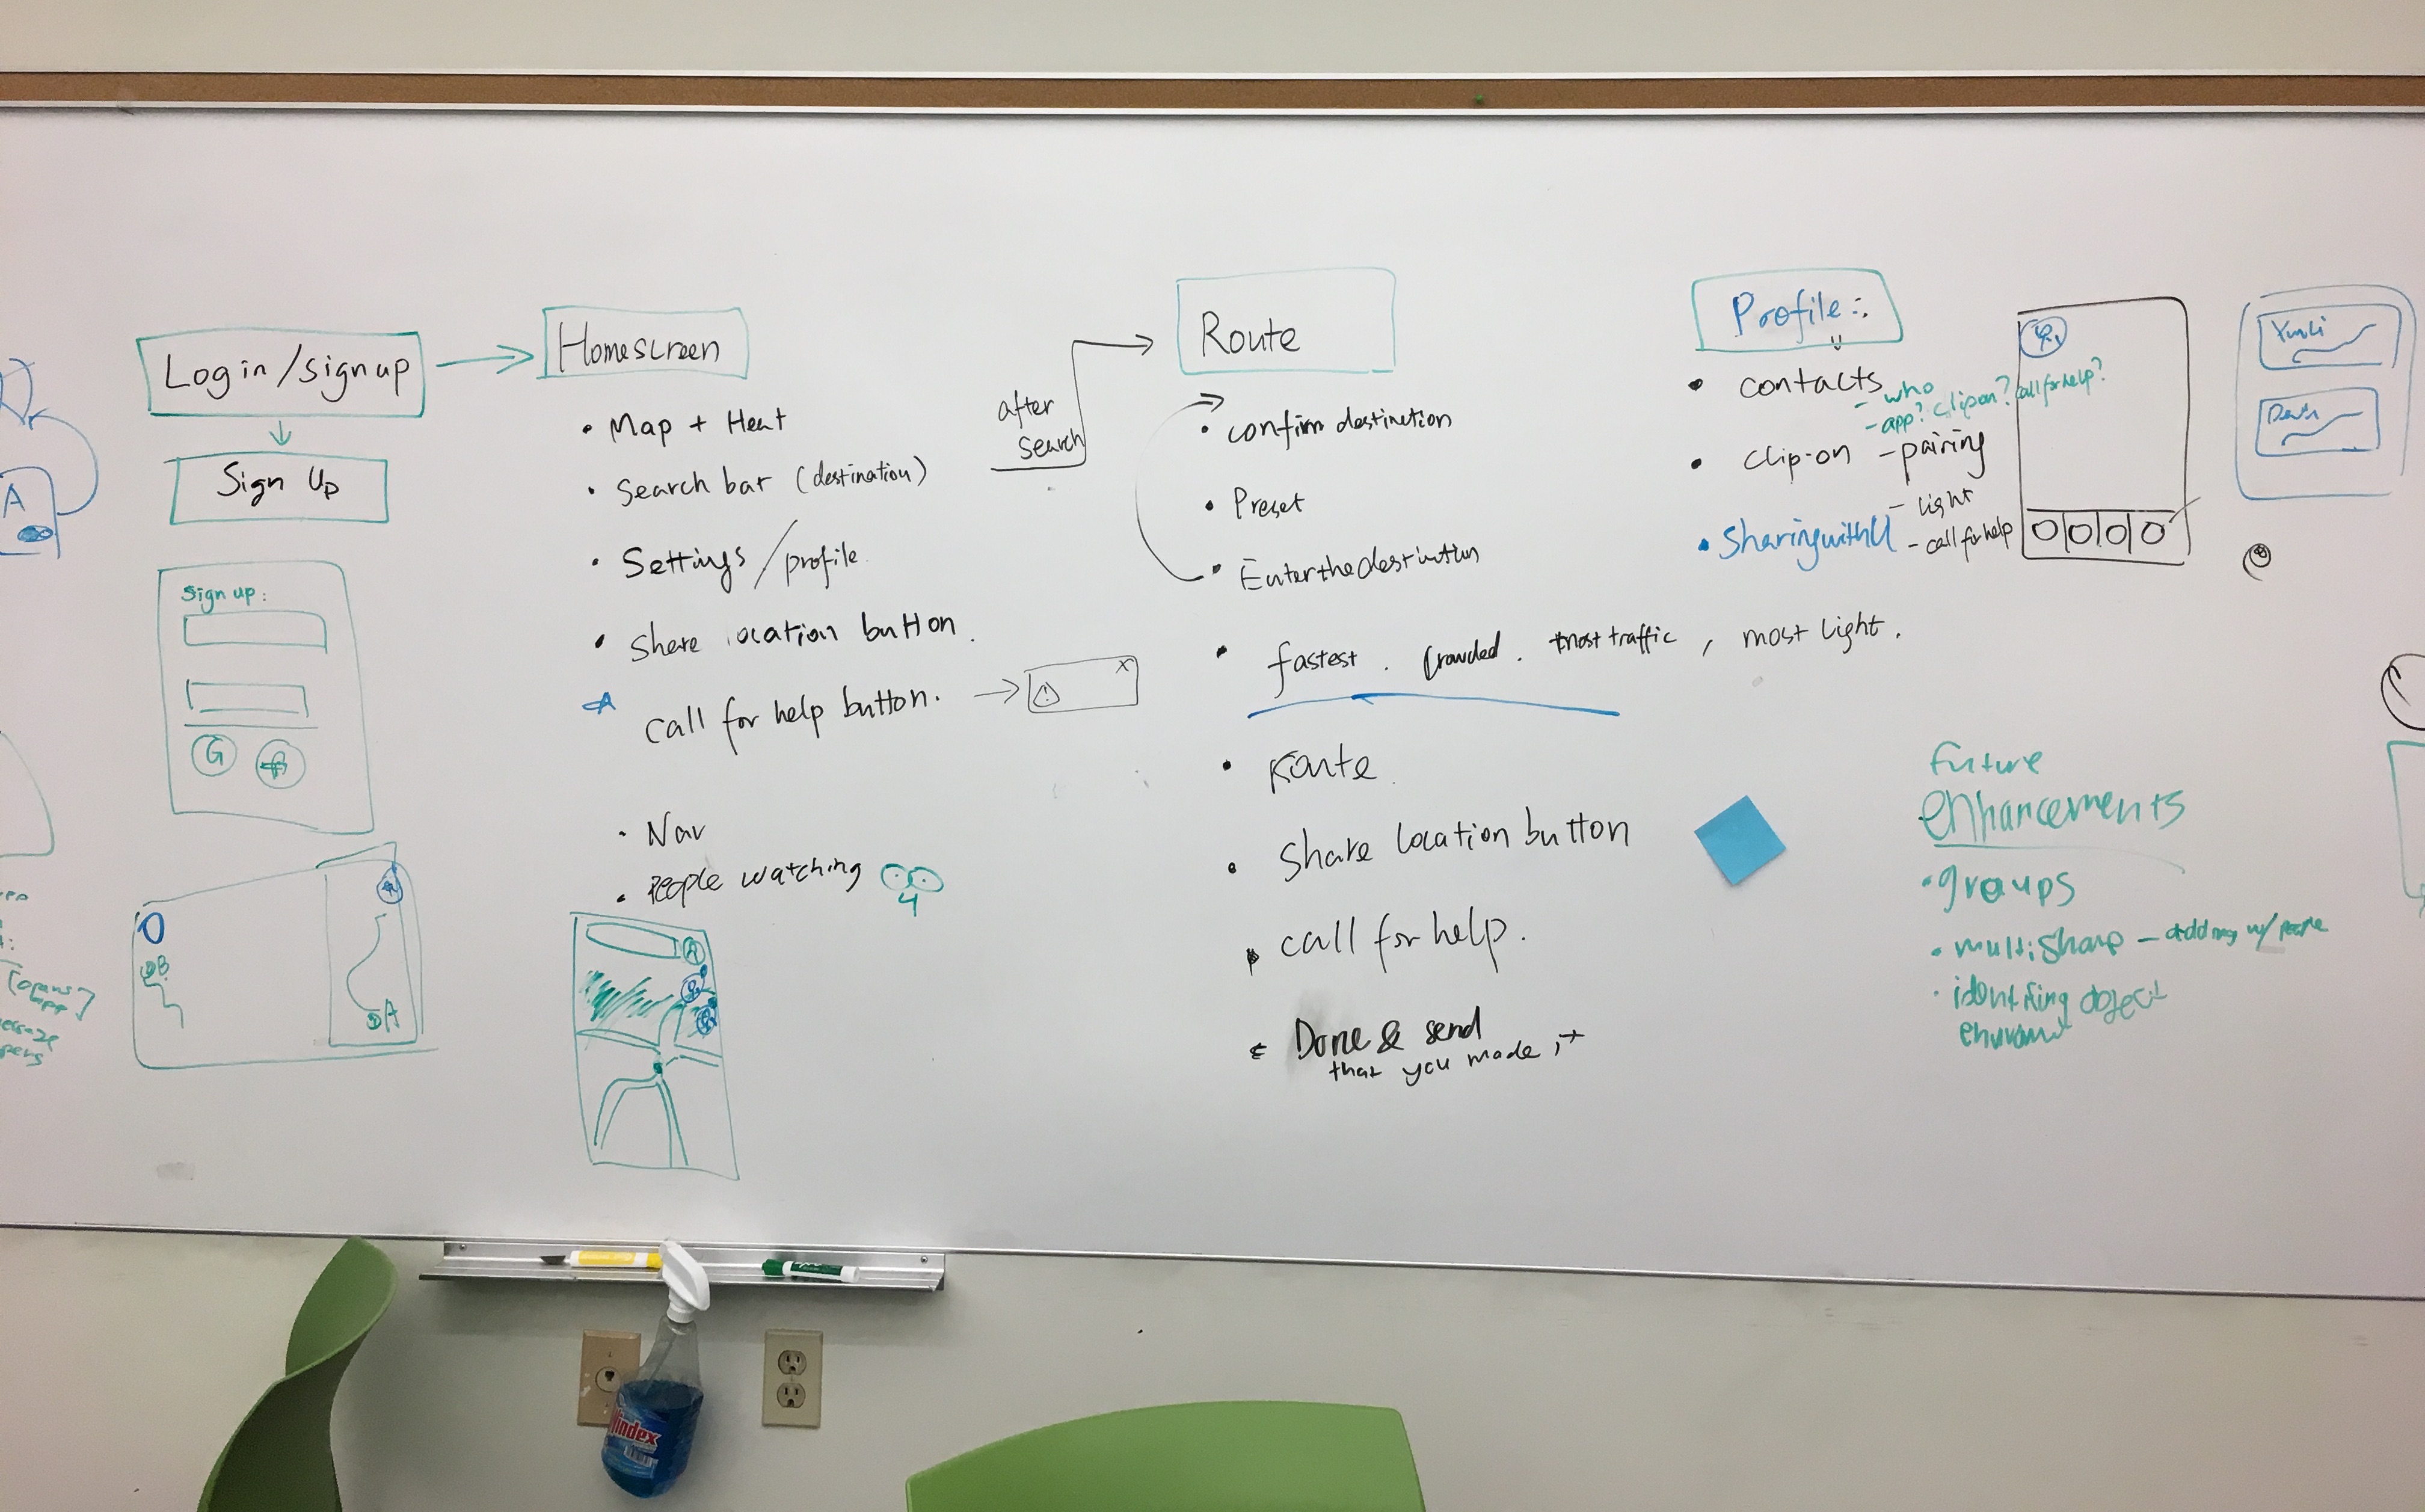 Log in / sign up
Sign Up
Sign up:
G
B
A
A
Homescreen
• Map + Heat
• Search bar (destination)
• Settings / profile
• Share location button.
call for help button.
X
!
• Nav
• People watching
after
search
Route
• confirm destination
• Preset
• Enter the destination
• fastest. Crowded. most traffic, most light.
• Route
• Share location button
• call for help.
• Done & send
that you made it
Profile:
• contacts
- who
- app? clip on? call for help?
• clip-on - pairing
- light
- call for help
• Sharing with U
future
enhancements
• groups
• multi sharp - adding w/ people
• identifing object
(opens
app)